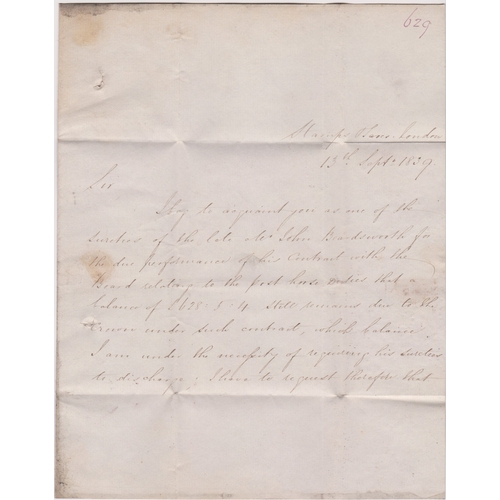 629
Stamps & Taxes London
13th Septr 1839
Sir
I beg to acquaint you as one of the
sureties of the late Mr John Bardsworth for
the due performance of his Contract with the
Board relating to the post horse duties that a
balance of £628. 8. 4 still remains due to the
Crown under such contract, which balance
I am under the necessity of requiring his sureties
to discharge; I have to request therefore that